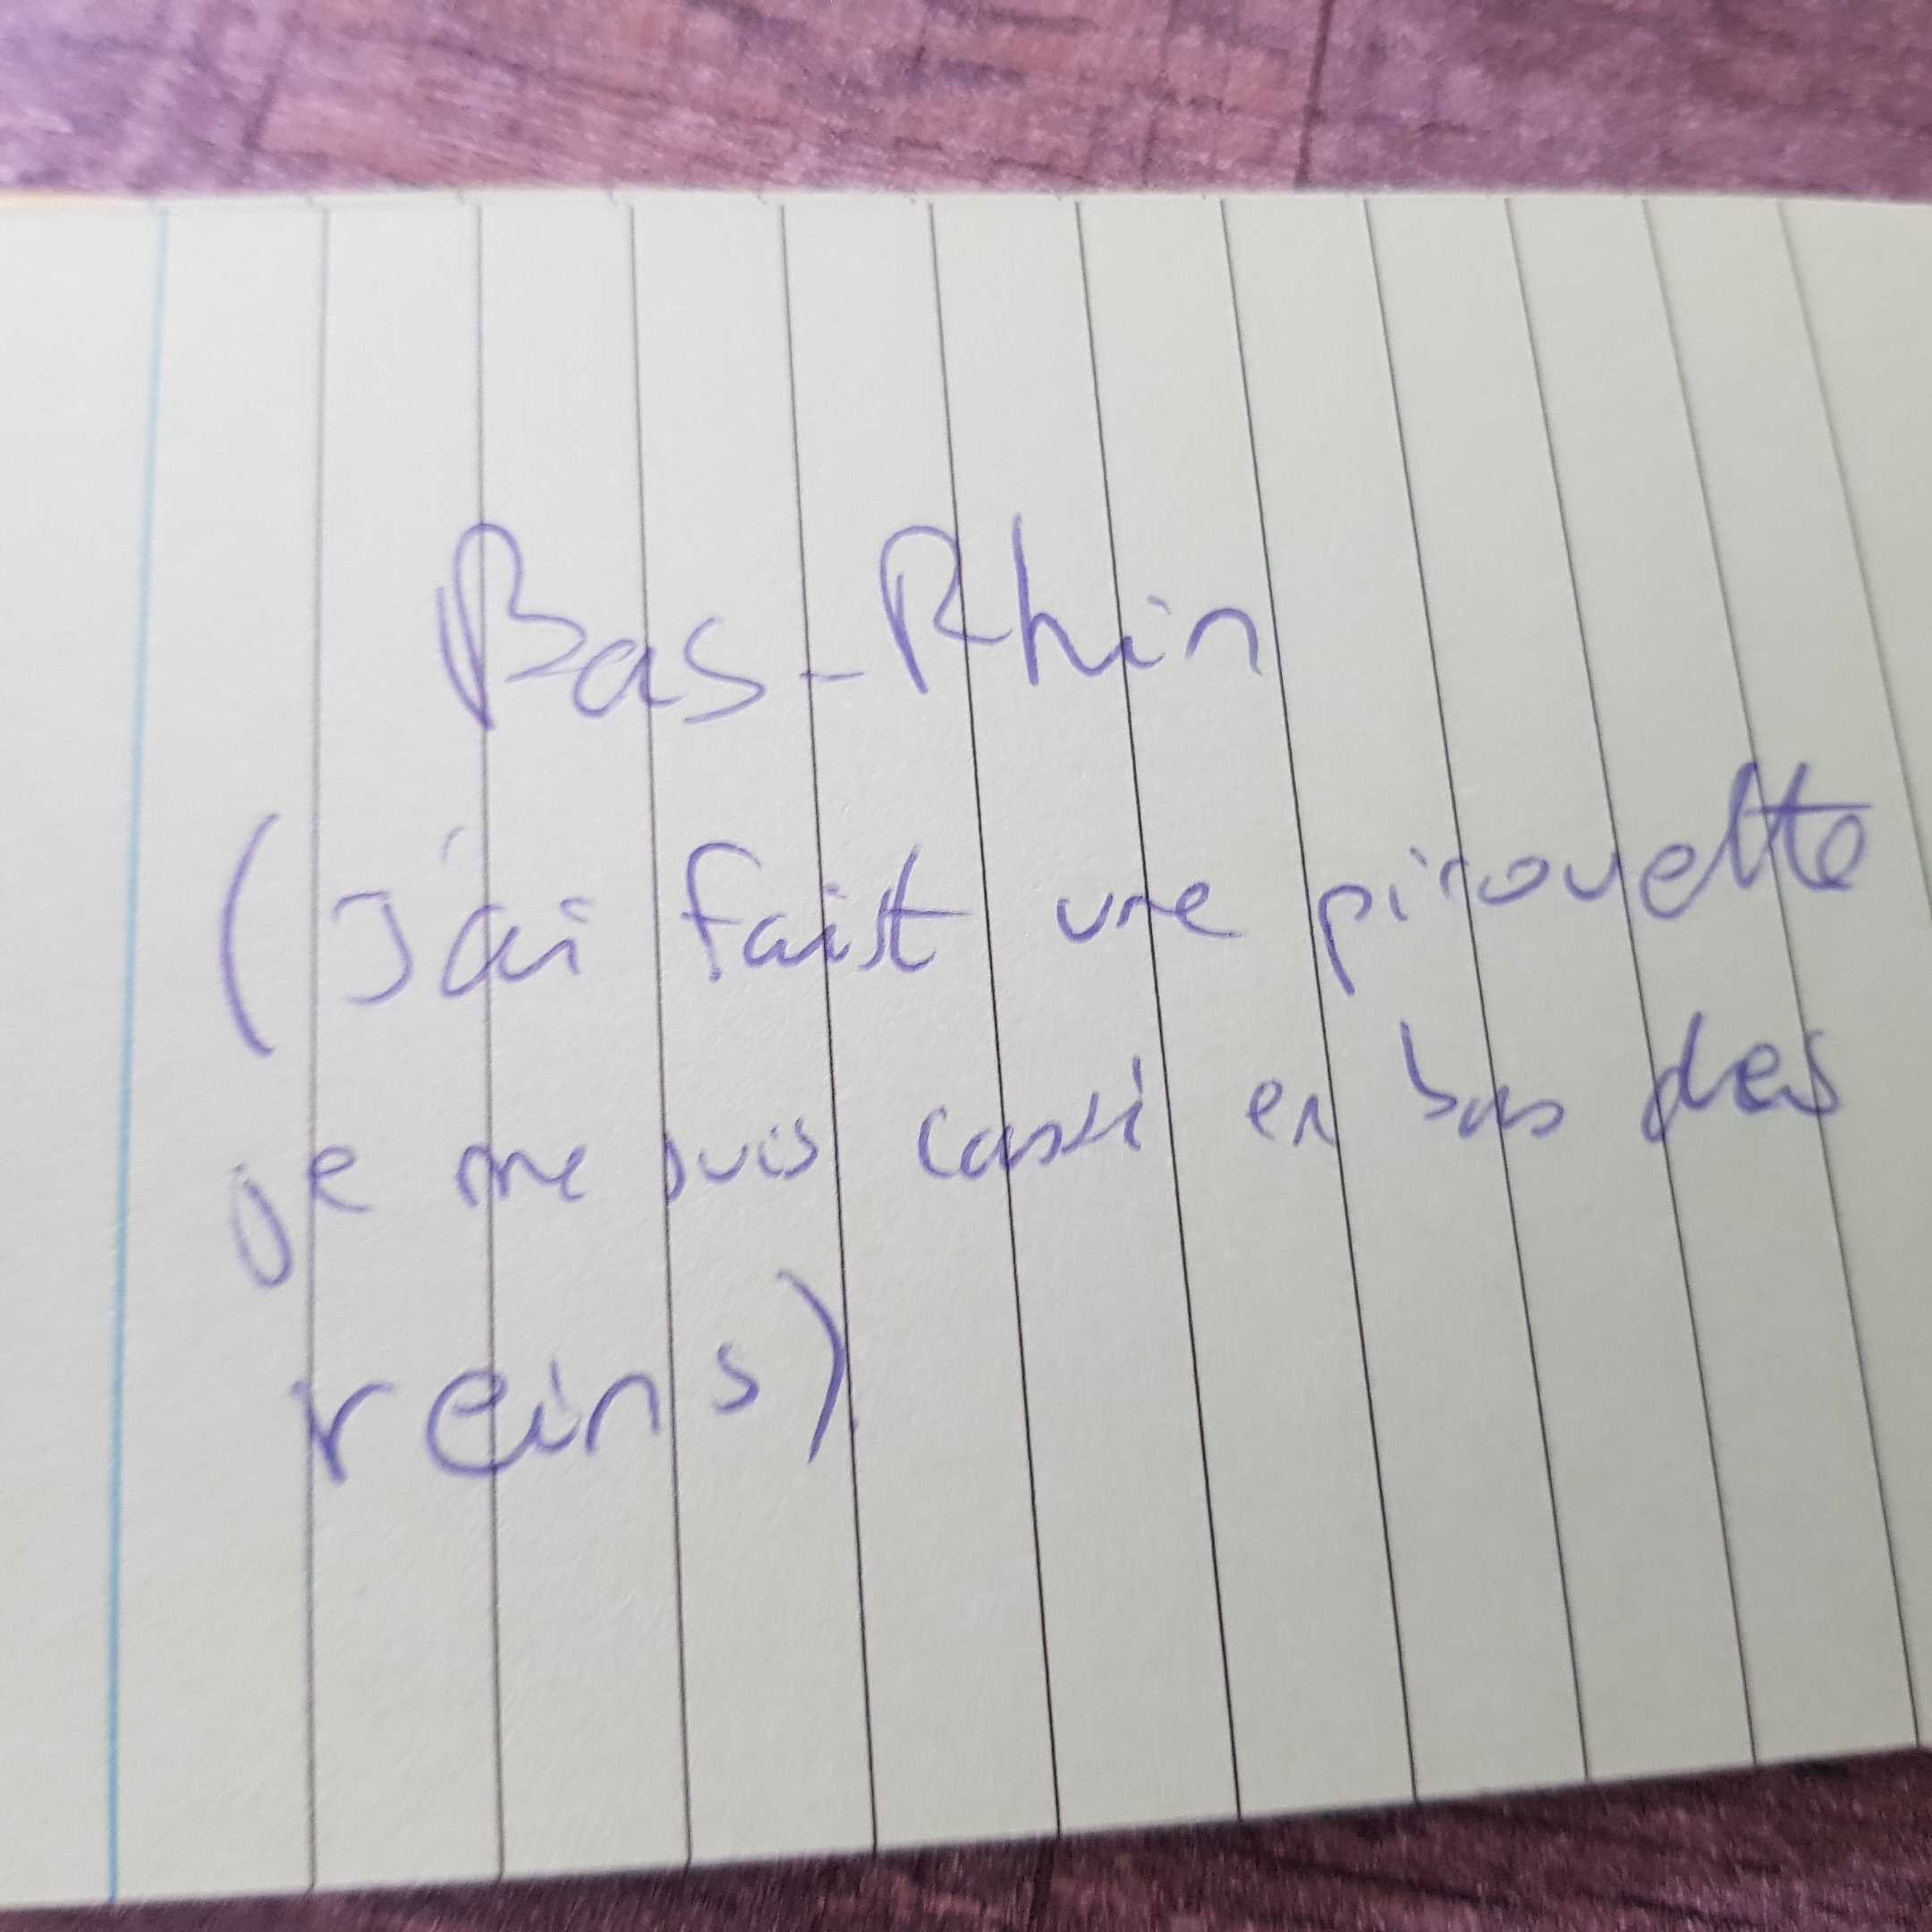 Bas-Rhin
(J'ai fait une pirouette
je me suis cassé en bas des
reins)